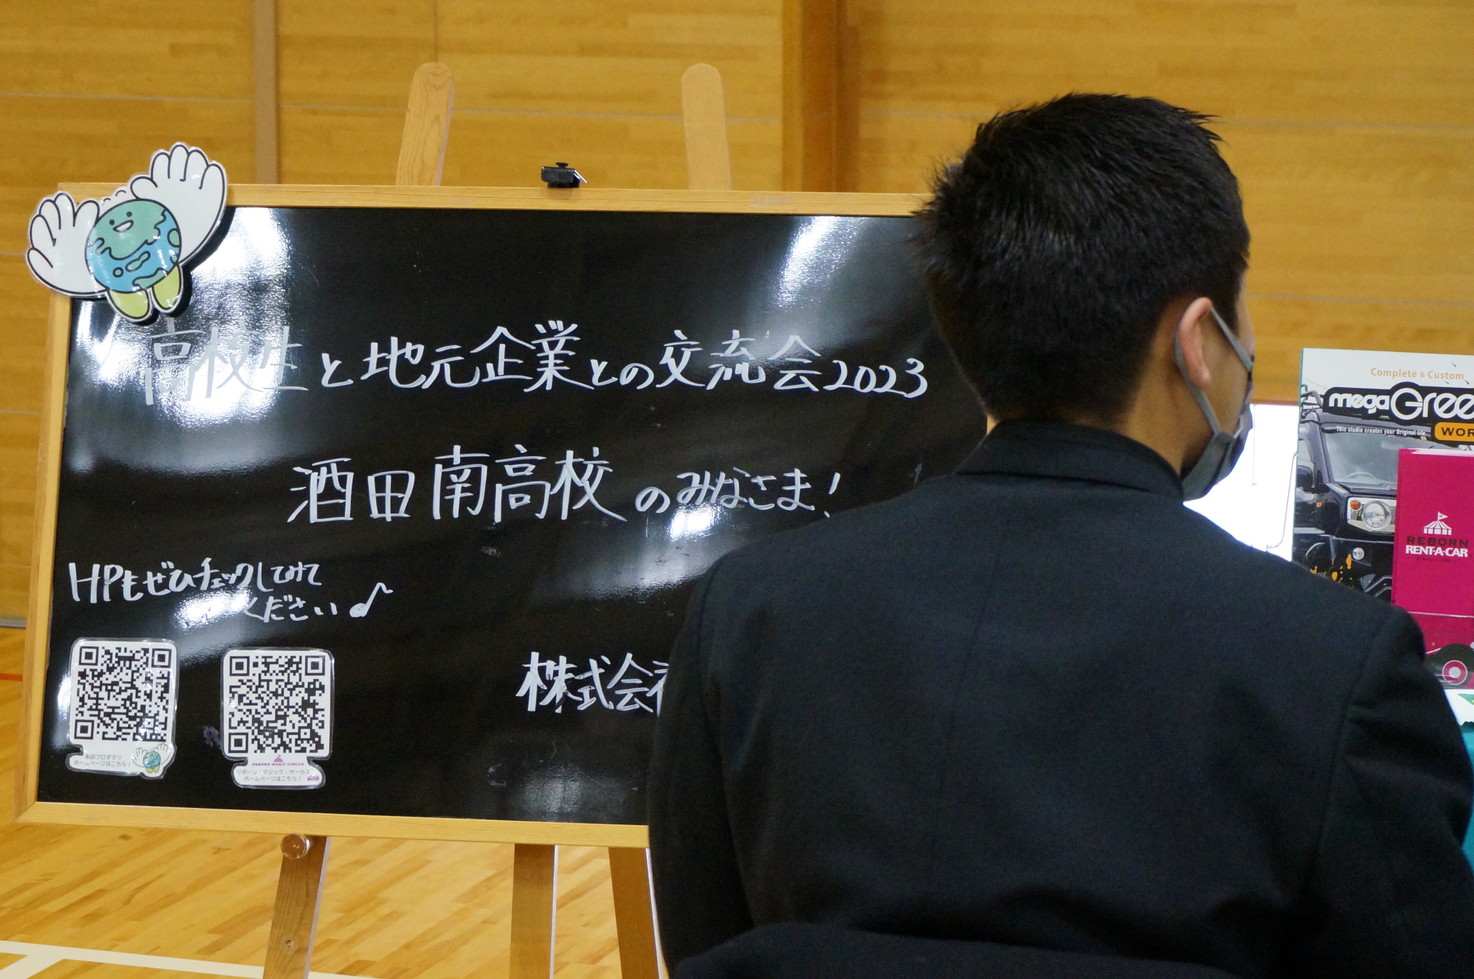 高校生と地元企業との交流会2023
酒田南高校のみなさま!
HPもぜひチェックしてみて
ください♪
株式会社
ホームページはこちら!
REBORN MAGIC CIRCUS
リボーン・マジック・サーカス
ホームページはこちら!
Complete & Custom
mega Gree
WOR
This studio creates your Original one.
REBORN
RENT-A-CAR